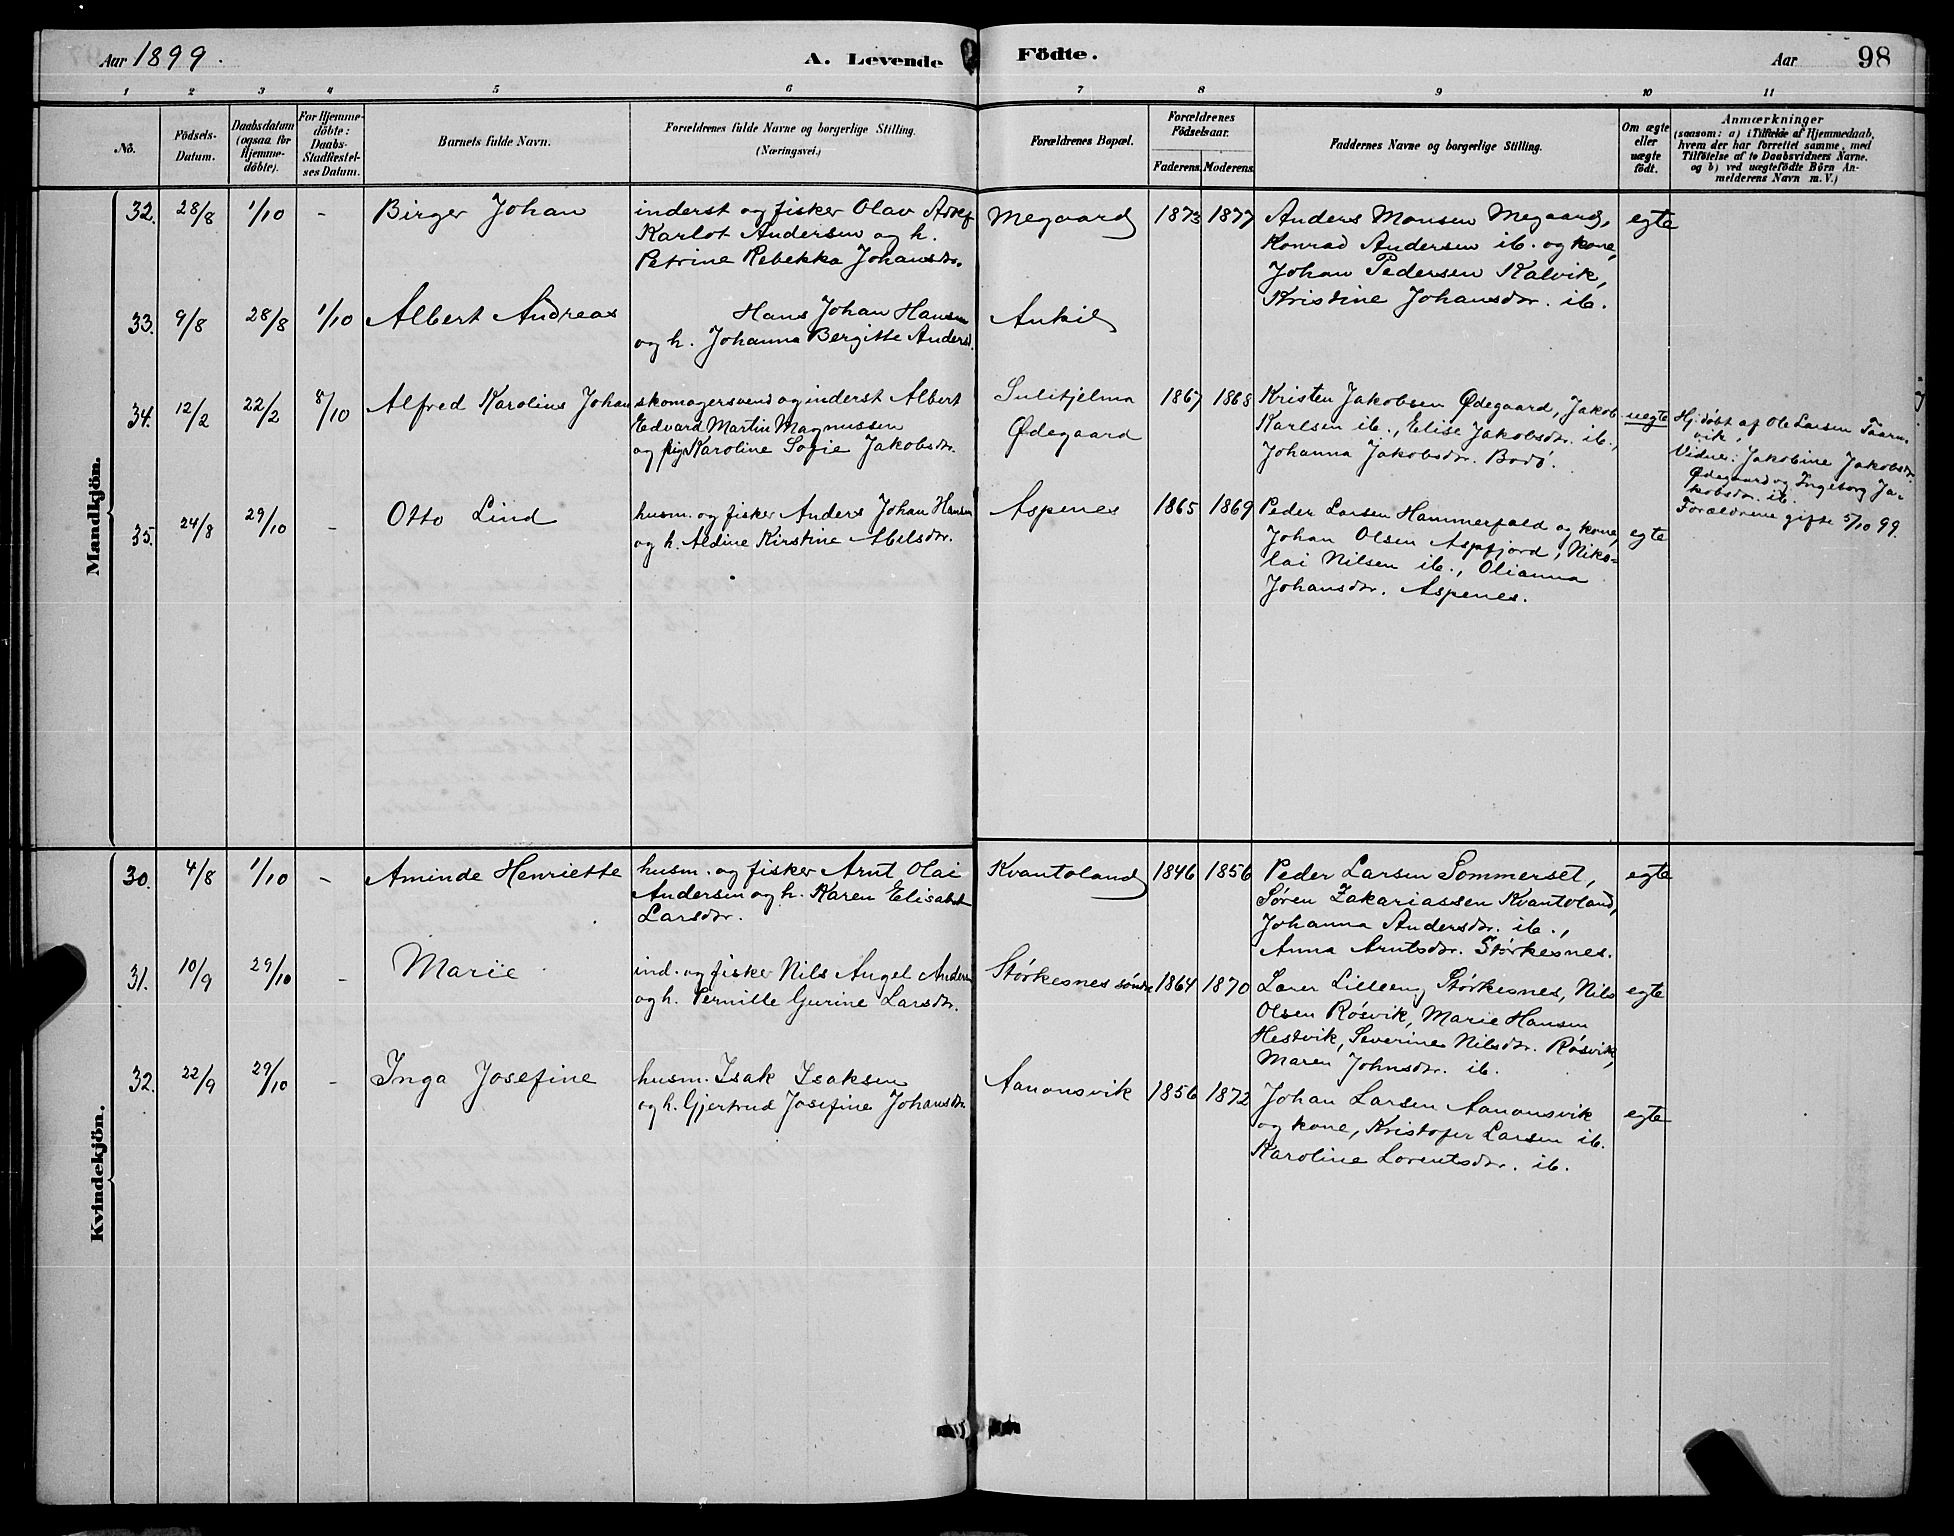 Aar 1899. A. Levende Födte. Aar 98
1 2 3 4 5 6 7 8 9 10 11
No.
Födsels-
Datum.
Daabsdatum
(ogsaa for
Hjemme-
döbte).
For Hjemme-
döbte:
Daabs-
Stadfæstel-
ses Datum.
Barnets fulde Navn.
Forældrenes fulde Navne og borgerlige Stilling.
(Næringsvei.)
Forældrenes Bopæl.
Forældrenes
Födselsaar.
Faderens. Moderens.
Faddernes Navne og borgerlige Stilling.
Om ægte
eller
uægte
födt.
Anmærkninger
(saasom: a) i Tilfælde af Hjemmedaab,
hvem der har forrettet samme, med
Tilföielse af to Daabsvidners Navne.
og b) ved uægtefödte Börn An-
melderens Navn m. V.)
Mandkjön.
32. 28/8 1/10 - Birger Johan
inderst og fisker Olav Adolf
Karlot Andersen og h.
Petrine Rebekka Johansdr.
Megaard 1873 1877
Anders Monsen Megaard,
Konrad Andersen ib. og kone,
Johan Pedersen Kalvik,
Kristine Johansdr. ib.
egte
33. 9/8 28/8 1/10 Albert Andreas
Hans Johan Hansen
og h. Johanna Bergitte Andersd.
Ankil
34. 12/2 22/2 8/10 Alfred Karolius Johan
skomagersvend og inderst Albert
Edvard Martin Magnussen
og pige Karoline Sofie Jakobsdr.
Sulitjelma
Ødegaard
1867 1868
Kristen Jakobsen Ødegaard, Jakob
Karlsen ib., Elise Jakobsdr. ib.,
Johanna Jakobsdr. Bodö.
uegte
Hj. döbt af Ole Larsen Taarn-
vik,
Vidner: Jakobine Jakobsdr.
Ødegaard og Ingeborg Ja-
kobsdr. ib.
Forældrene gifte 5/10 99.
35. 24/8 29/10 - Otto Lind
husm. og fisker Anders Johan Hansen
og h. Aldine Kirstine Abelsdr.
Aspenes 1865 1869
Peder Larsen Hammerfald og kone,
Johan Olsen Aspfjord, Niko-
lai Nilsen ib., Olianna
Johansdr. Aspenes.
egte
Kvindekjön.
30. 4/8 1/10 - Aminde Henriette
husm. og fisker Arnt Olai
Andersen og h. Karen Elisabet
Larsdr.
Kvantoland 1846 1856
Peder Larsen Sommerset,
Søren Zakariassen Kvantoland,
Johanna Andersdr. ib.,
Anna Arntsdr. Störkesnes.
egte
31. 10/9 29/10 - Marie
ind. og fisker Nils Angel Anders
og h. Pernille Gurine Larsdr.
Störkesnes söndre 1864 1870
Lærer Lilleeng Störkesnes, Nils
Olsen Rösvik, Marie Hansen
Hestvik, Severine Nilsdr. Rösvik,
Maren Johnsdr. ib.
egte
32. 22/9 29/10 - Inga Josefine
husm. Isak Isaksen
og h. Gjertrud Josefine Johansdr.
Aanonsvik 1856 1872
Johan Larsen Aanonsvik
og kone, Kristofer Larsen ib.
Karoline Lorentsdr. ib.
egte